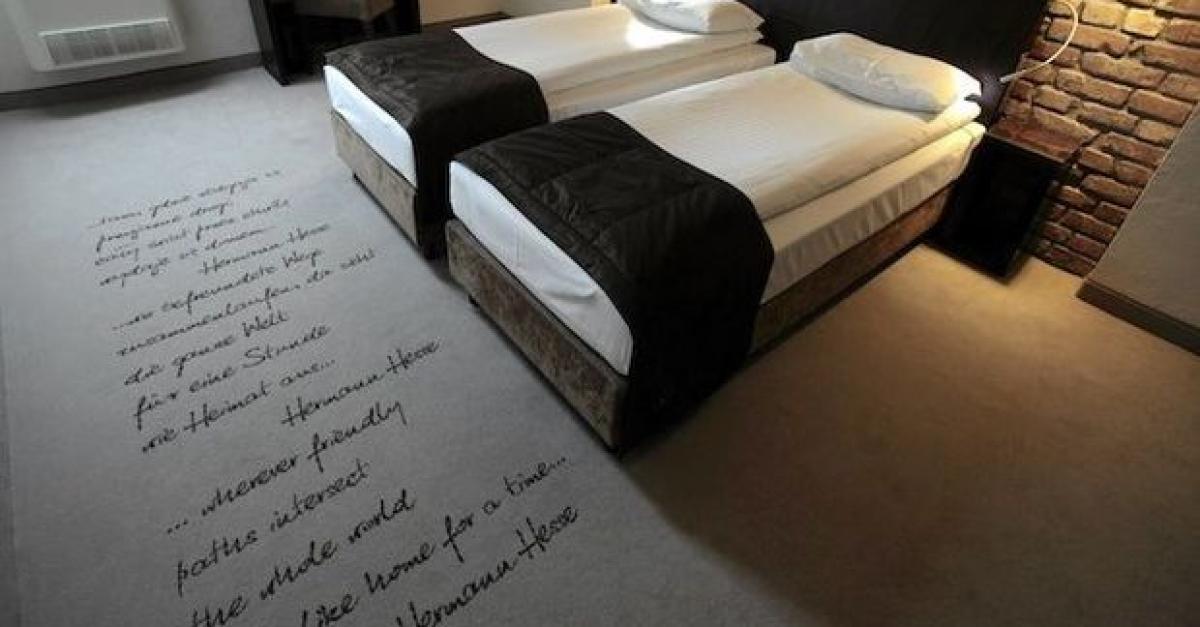 przyjazne drogi
Hermann Hesse
...wo befreundete Wege
zusammenlaufen, da sieht
die ganze Welt
für eine Stunde
wie Heimat aus...
Hermann Hesse
... wherever friendly
paths intersect
the whole world
like home for a time...
Hermann Hesse